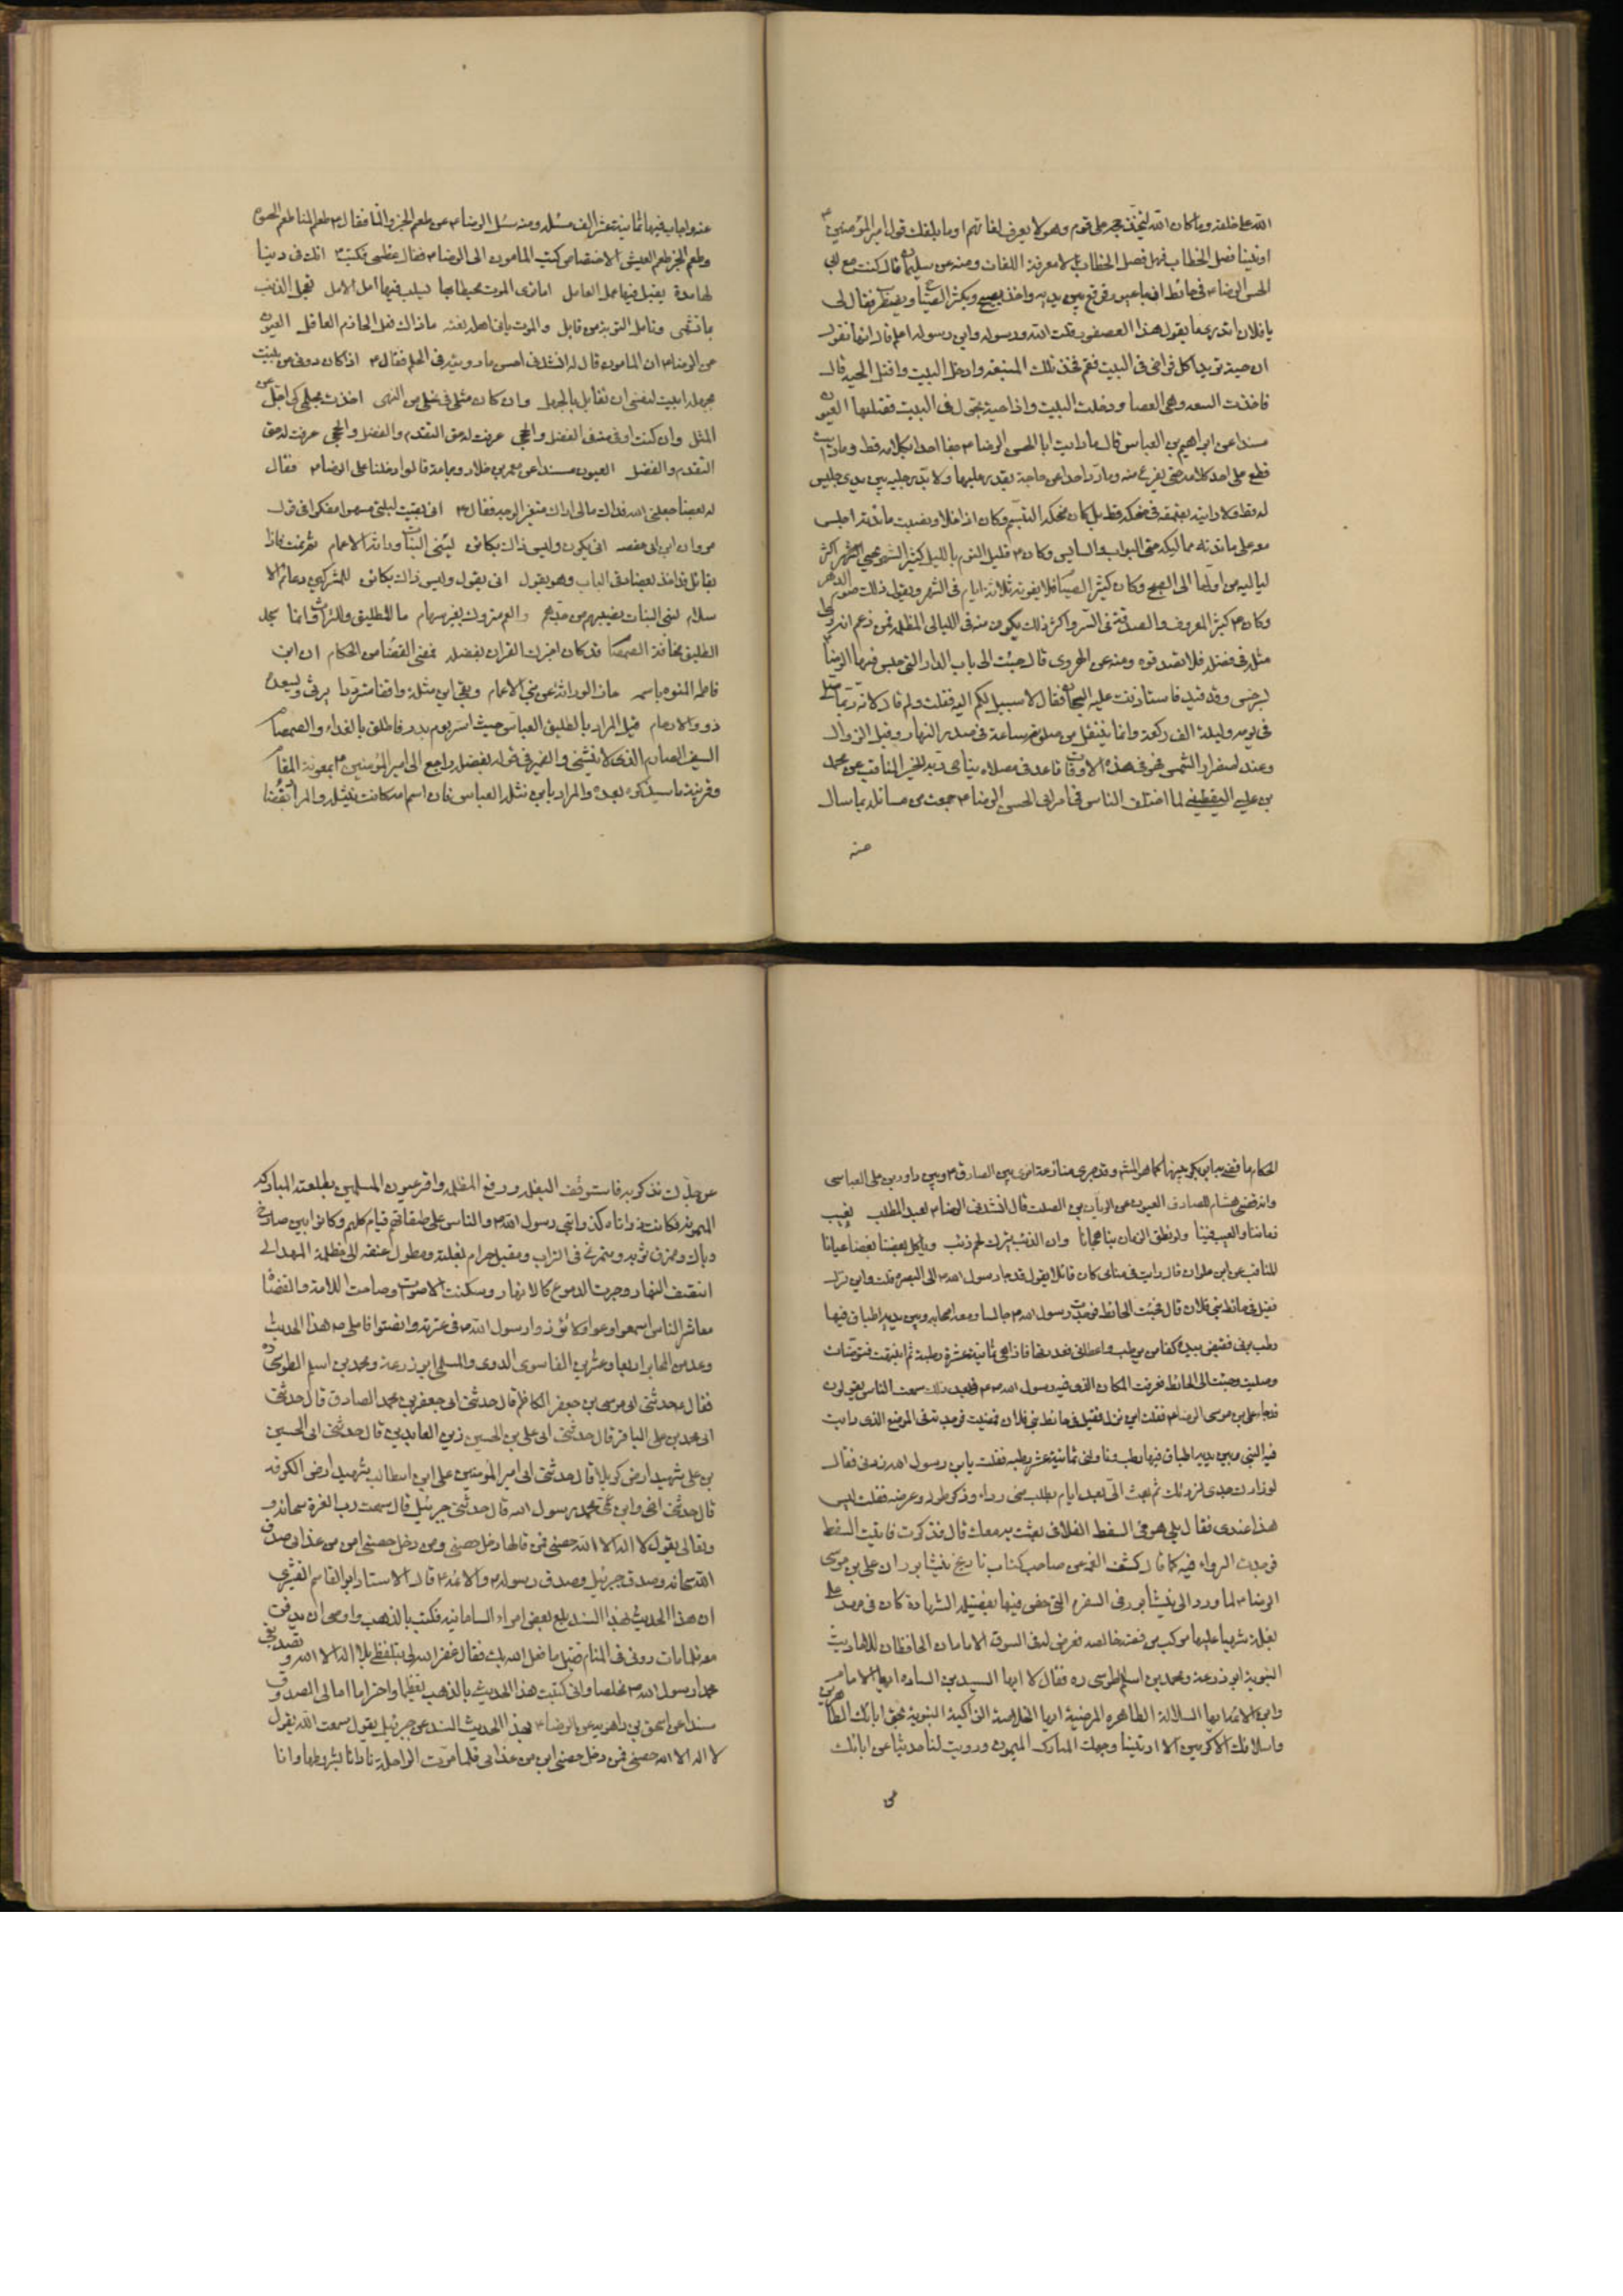 الله على خلقه وما كان الله ليتخذ حجة على قوم وهو لا يعرف لغاتهم اوما بلغك قول امير المؤمنين ع
اوتينا فصل الخطاب فهل فصل الخطاب الا معرفة اللغات ومنه عن سليمان قال كنت مع ابي
الحسن الرضا ع في حائط له اذ جاء عصفور فوقع بين يديه واخذ يصيح ويكثر الصياح ويضطرب فقال لي
يا فلان اتدري ما يقول هذا العصفور قلت الله ورسوله وابن رسوله اعلم قال انها تقول
ان حية تريد اكل فراخي في البيت فقم فخذ تلك النبعة وادخل البيت واقتل الحية قال
فاخذت السعه وهي العصا ودخلت البيت واذا حية تجول في البيت فقتلتها العيون
مسندا عن ابراهيم بن العباس قال ما رايت ابا الحسن الرضا ع جفا احدا بكلامه قط وما رايت
قطع على احد كلامه حتى يفرغ منه وما رد احدا عن حاجة يقدر عليها ولا مد رجليه بين يدي جليس
له قط ولا رايته يقهقه في ضحكه قط بل كان ضحكه التبسم وكان اذا خلا ونصبت مائدته اجلس
معه على مائدته مماليكه حتى البواب والسايس وكان ع قليل النوم بالليل كثير السهر يحيي اكثر
لياليه من اولها الى الصبح وكان كثير الصيام فلا يفوته ثلاثة ايام في الشهر ويقول ذلك صوم الدهر
وكان ع كثير المعروف والصدقة في السر واكثر ذلك يكون منه في الليالي المظلمة فمن زعم انه راى
مثله في فضله فلا تصدقوه ومنه عن الهروي قال جئت الى باب الدار التي حبس فيها الرضا ع
بسرخس وقد قيد فاستاذنت عليه السجان فقال لا سبيل لكم اليه فقلت ولم قال لانه ربما صلى
في يومه وليلته الف ركعة وانما ينفتل من صلوته ساعة في صدر النهار وقبل الزوال
وعند اصفرار الشمس فهو في هذه الاوقات قاعد في مصلاه يناجي ربه للخبر المناقب عن محمد
بن عيسى اليقطيني لما اختلف الناس في امر ابي الحسن الرضا ع جمعت من مسائله مما سال
عنه
عنه واجاب فيها ثمانية عشر الف مسئلة ومنه سئل الرضا ع عن طعم الخبز والماء فقال ع طعم الماء طعم الحيوة
وطعم الخبز طعم العيش الاختصاص كتب المامون الى الرضا ع فقال عظني فكتب ع انك في دنيا
لها مدة يقبل فيها عمل العامل اما ترى الموت محيطا بها يسلب فيها امل الامل تعجل الذنب
بما تشتهي وتامل التوبة من قابل والموت ياتي اهله بغتة ماذاك فعل الحازم العاقل العيون
عن الرضا ع ان المامون قال له انشدني احسن ما رويته في الحلم فقال ع اذا كان دوني من بليت
بجهله ابيت لنفسي ان تقابل بالجهل وان كان مثلي في محلي من النهى اخذت بحلمي كي اجل عن
المثل وان كنت ادنى منه في الفضل والحجى عرفت له حق التقدم والفضل والحجى عرفت له حق
التقدم والفضل العيون مسندا عن معمر بن خلاد وجماعة قالوا دخلنا على الرضا ع فقال
له بعضنا جعلني الله فداك مالي اراك متغير الوجه فقال ع اني بقيت ليلتي مسهرا مفكرا في قول
مروان ابن ابي حفصه انى يكون وليس ذاك بكائن لبني البنات وراثة الاعمام ثم نمت فاذا
بقائل قد اخذ بعضادتي الباب وهو يقول انى يقول وليس ذاك بكائن للمشركين دعائم الا
سلام لبني البنات نصيبهم من جدهم والعم متروك بغير سهام ما للطليق وللتراث وانما سجد
الطليق مخافة الصمصام قد كان اخبرك القران بفضله فمضى القضاء من الحكام ان ابن
فاطمة المنوه باسمه حاز الوراثة عن بني الاعمام وبقي ابن نثلة واقفا مترددا يرثي ويسعده
ذووا الارحام قيل المراد بالطليق العباس حيث اسر يوم بدر فاطلق بالفداء والصمصام
السيف الصارم الذي لا ينثني والضمير في قوله بفضله راجع الى امير المؤمنين ع بمعونة المقام
وقرينة ما سيذكره بعده والمراد بابن نثلة العباس فان اسم امه كانت نثيلة والمراد بقضاء
الحكام ما قضى به ابو بكر وقد جرى منازعة اخرى بين الصادق ع وبين داود بن علي العباسي
وانه قضى هشام للصادق العيون عن الريان بن الصلت قال انشدني الرضا ع لعبد المطلب يعيب
زماننا والعيب فينا ولو نطق الزمان بنا هجانا وان الذئب يترك لحم ذئب وياكل بعضنا بعضا عيانا
المناقب عن ابن علوان قال رايت في منامي كان قائلا يقول قد جاء رسول الله ص الى البصرة قلت واين نزل
فقيل في حائط بني فلان قال فجئت الحائط فوجدت رسول الله ص جالسا ومعه اصحابه وبين يديه اطباق فيها
رطب برني فقبض بيده كفا من رطب واعطاني فعددتها فاذا هي ثمانية عشرة رطبة ثم انتبهت فتوضات
وصليت وجئت الى الحائط فعرفت المكان الذي فيه رسول الله ص فبعد ذلك سمعت الناس يقولون
قد جاء علي بن موسى الرضا ع فقلت اين نزل فقيل في حائط بني فلان فمضيت فوجدته في الموضع الذي رايت
فيه النبي وبين يديه اطباق فيها رطب وناولني ثمانية عشر رطبه فقلت يابن رسول الله زدني فقال
لو زادك جدي لزدتك ثم بعث الي بعد ايام يطلب مني رداء وذكر طوله وعرضه فقلت ليس
هذا عندي فقال بلى هو في السفط الفلاني بعثت به معك قال فذكرت فاتيت السفط
فوجدت الرداء فيه كما قال كشف الغمه عن صاحب كتاب تاريخ نيشابور ان علي بن موسى
الرضا ع لما ورد الى نيشابور في السفرة التي خص فيها بفضيلة الشهادة كان في مهد على
بغلة شهباء عليها مركب من فضة خالصه فعرض له في السوق الامامان الحافظان للاحاديث
النبوية ابو زرعة ومحمد بن اسلم الطوسي ره فقال لا ايها السيد بن السادة ايها الامام
وابن الائمة ايها السلالة الطاهره المرضية ايها الخلاصة الزاكية النبوية بحق ابائك الطاهرين
واسلافك الاكرمين الا اريتنا وجهك المبارك الميمون ورويت لنا حديثا عن ابائك
عن
عن جدك نذكرك به فاستوقف البغله ورفع المظله واقر عيون المسلمين بطلعته المباركه
الميمونة فكانت والناس على طبقاتهم قيام كلهم وكانوا بين صارخ
وباك وممزق ثوبه ومتمرغ في التراب ومقبل حزام بغلته ومطول عنقه الى مظلة المهد الى
انتصف النهار وجرت الدموع كالانهار وسكنت الاصوات وصاحت الائمة والقضاة
معاشر الناس اسمعوا وعوا ولا تؤذوا رسول الله ص في عترته وانصتوا فاملى ص هذا الحديث
وعد من المحابر اربعا وعشرين الفا سوى الدوى والمستملي ابو زرعة ومحمد بن اسلم الطوسي ره
فقال ع حدثني ابي موسى بن جعفر الكاظم قال حدثني ابي جعفر بن محمد الصادق قال حدثني
ابي محمد بن علي الباقر قال حدثني ابي علي بن الحسين زين العابدين قال حدثني ابي الحسين
بن علي شهيد ارض كربلا قال حدثني ابي امير المؤمنين علي ابن ابيطالب شهيد ارض الكوفه
قال حدثني اخي وابن عمي محمد رسول الله قال حدثني جبرئيل قال سمعت رب العزة سبحانه و
وتعالى يقول لا اله الا الله حصني فمن قالها دخل حصني ومن دخل حصني امن من عذابي صدق
الله سبحانه وصدق جبرئيل وصدق رسوله ص والائمة ع قال الاستاد ابو القاسم القشيري
ان هذا الحديث بهذا السند بلغ بعض امراء السامانيه فكتبه بالذهب واوصى ان يدفن
معه فلما مات روئي في المنام فقيل ما فعل الله بك فقال غفر الله لي بتلفظي بلا اله الا الله وتصديقي
محمدا رسول الله ص مخلصا واني كتبت هذا الحديث بالذهب تعظيما واحتراما امالي الصدوق
مسندا عن اسحق بن راهويه عن الرضا ع بهذا الحديث السند عن جبرئيل يقول سمعت الله يقول
لا اله الا الله حصني فمن دخل حصني امن من عذابي فلما مرت الراحلة نادانا بشروطها وانا